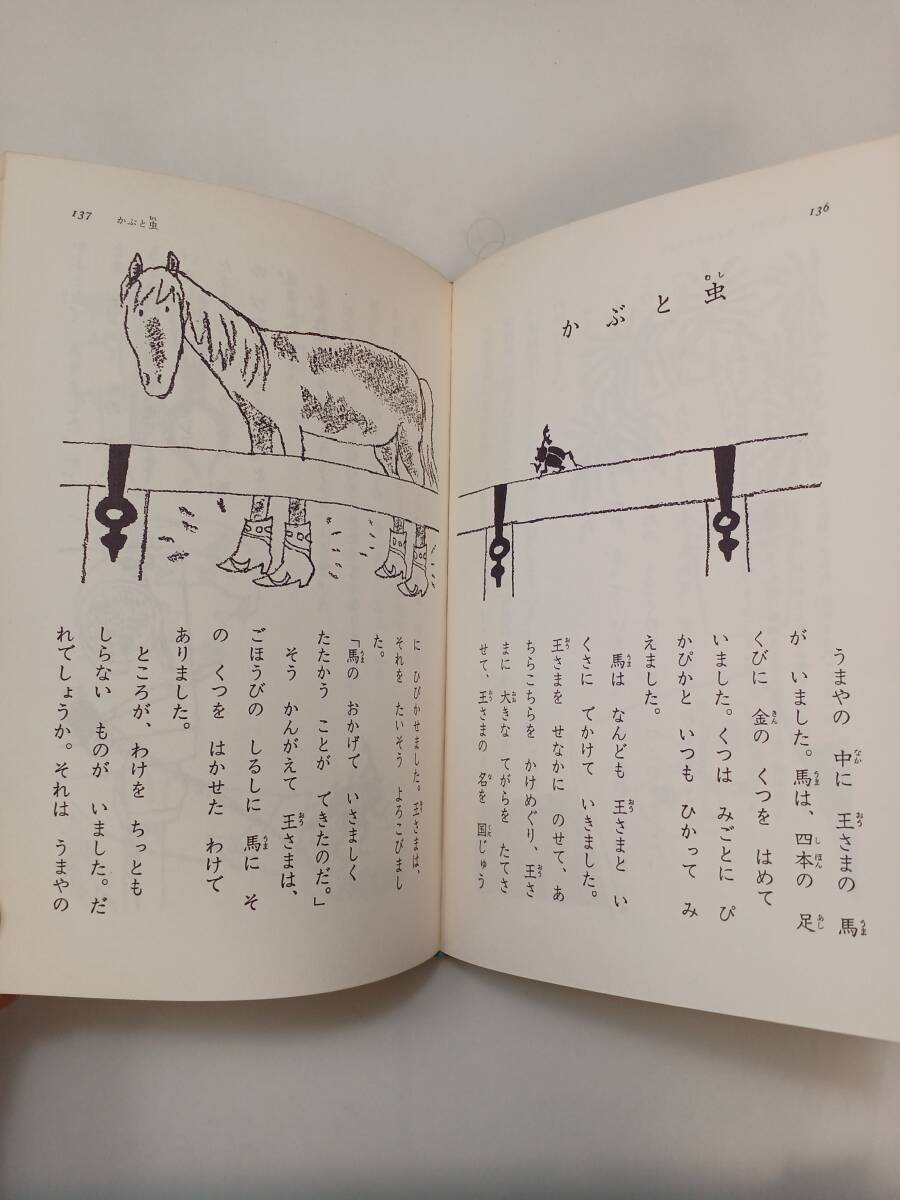 136
かぶと虫
うまやの 中に 王さまの 馬
が いました。馬は、四本の 足
くびに 金の くつを はめて
いました。くつは みごとに ぴ
かぴかと いつも ひかって み
えました。
馬は なんども 王さまと い
くさに でかけて いきました。
王さまを せなかに のせて、あ
ちらこちらを かけめぐり、王さ
まに 大きな てがらを たてさ
せて、王さまの 名を 国じゅう
137 かぶと虫
に ひびかせました。王さまは、
それを たいそう よろこびまし
た。
「馬の おかげで いさましく
たたかう ことが できたのだ。」
そう かんがえて 王さまは、
ごほうびの しるしに 馬に そ
の くつを はかせた わけで
ありました。
ところが、わけを ちっとも
しらない ものが いました。だ
れでしょうか。それは うまやの